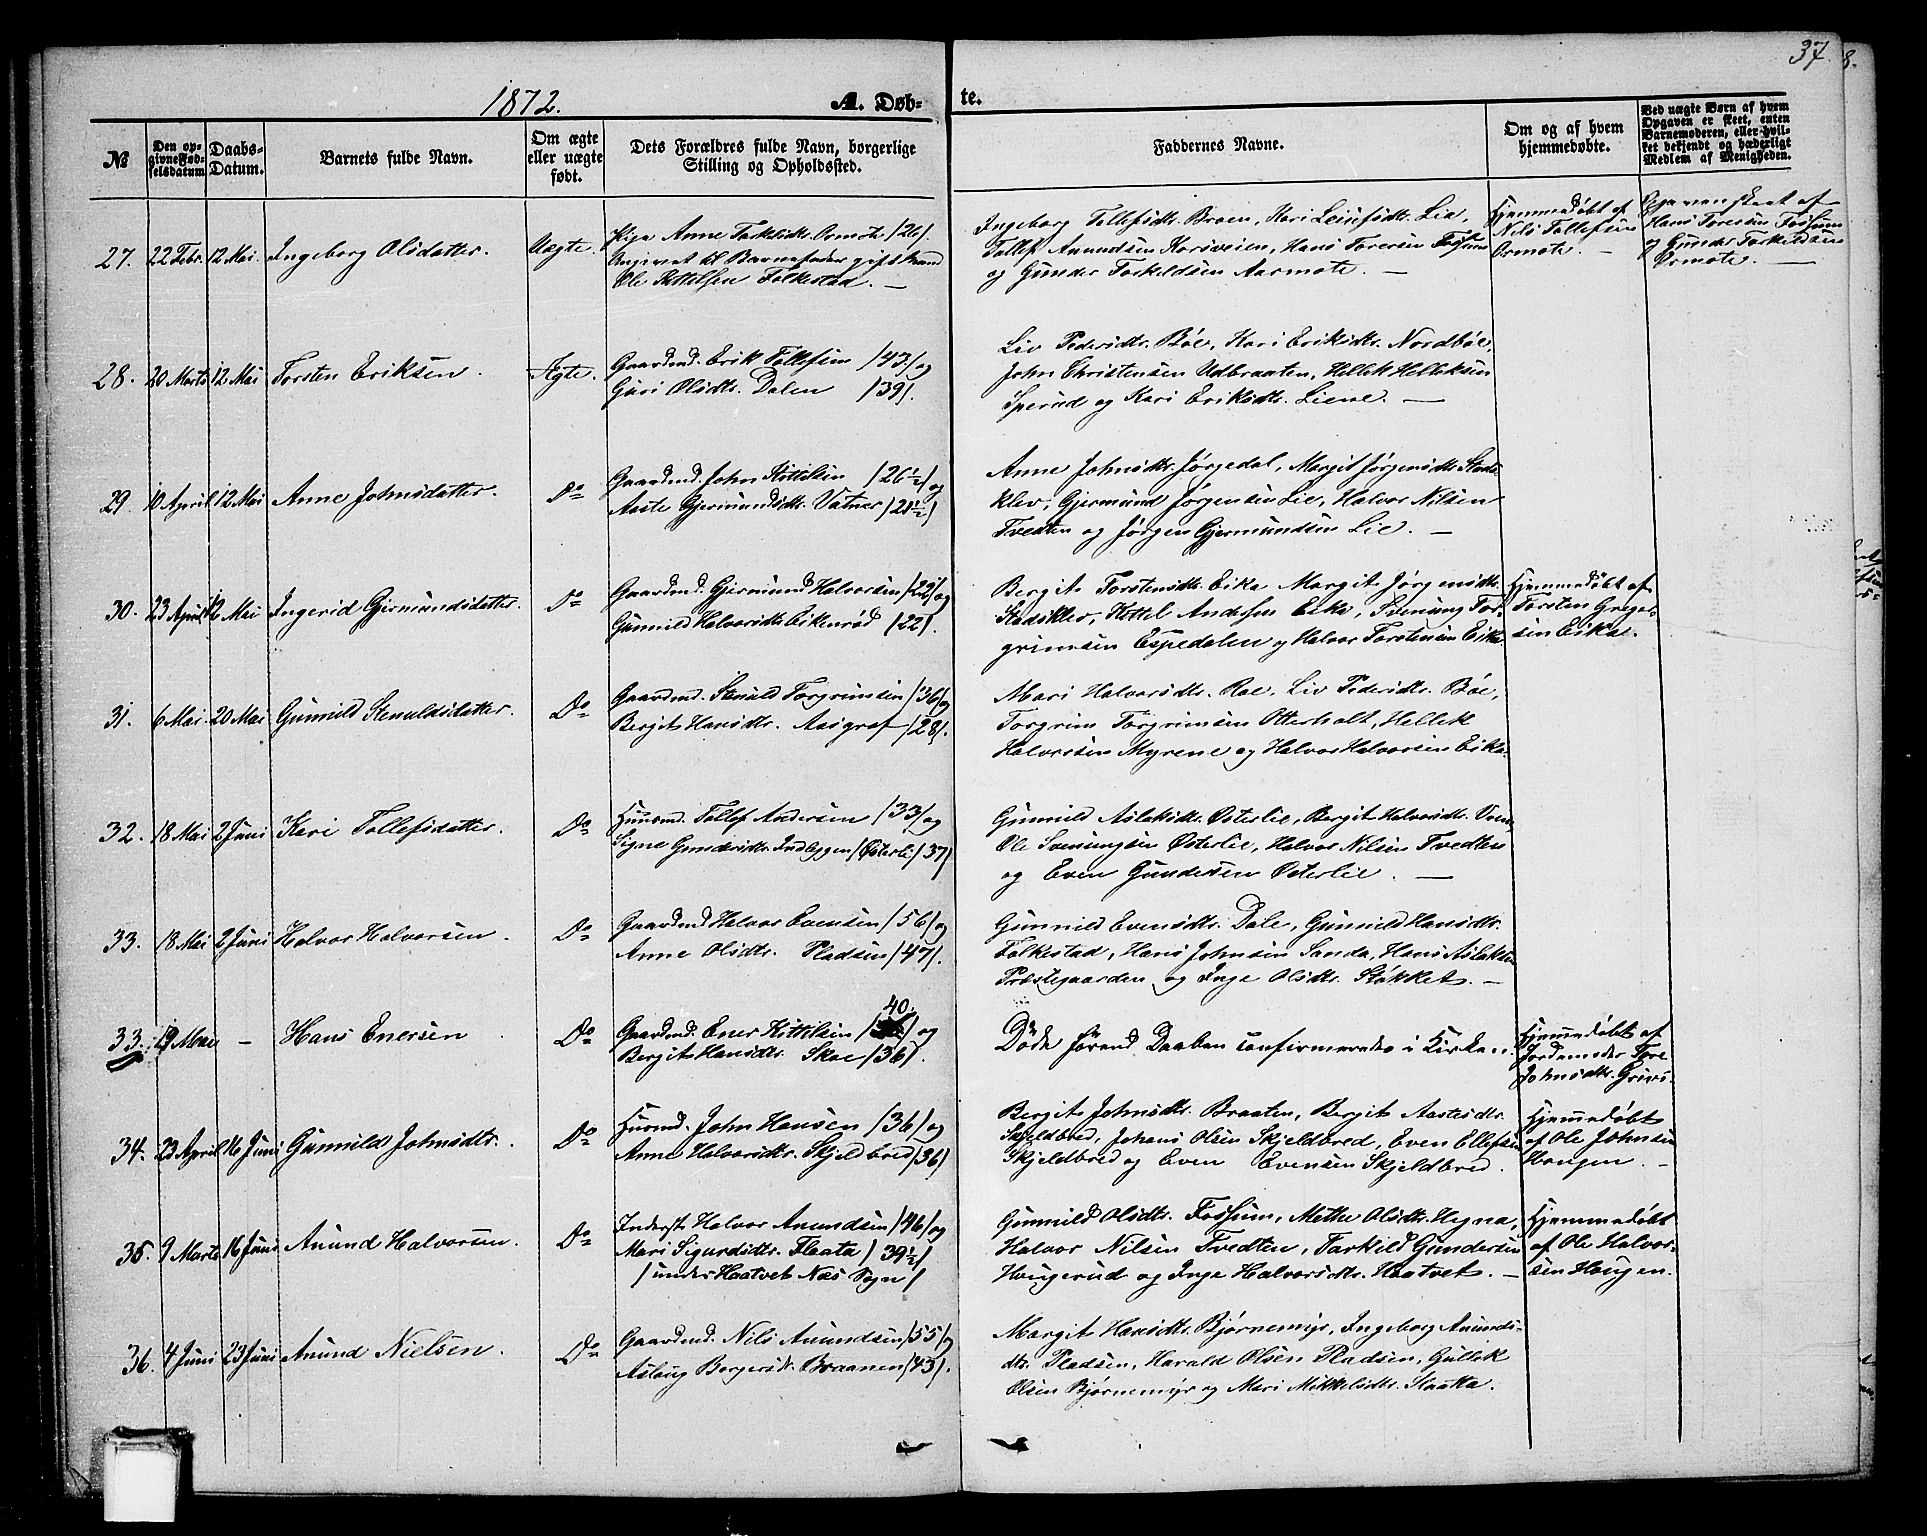 37.
8.
1872.
A. Døb-
te.
№
Den op-
givne Fød-
selsdatum
Daabs-
Datum.
Barnets fulde Navn.
Om ægte
eller uægte
født.
Dets Forældres fulde Navn, borgerlige
Stilling og Opholdssted.
Faddernes Navne.
Om og af hvem
hjemmedøbte.
Ved uægte Børn af hvem
Opgaven er skeet, enten
Barnemoderen, eller hvil-
ket bekjendt og hæderligt
Medlem af Menigheden.
27. 22 Febr. 12 Mai. Ingeborg Olsdatter. Uægte.
Pige Anne Torkelsdtr. Ormote /26/.
Angivet til Barnefader gift Mand
Ole Kittilsen Folkestad. —
Ingeborg Tollefsdtr. Braen, Kari Leiufsdtr. Lie,
Tollef Anundsen Korsveien, Hans Toresen Fossum
og Gunder Torkeldsen Aarmote. —
Hjemmedøbt af
Nils Tollefsen
Ormote. —
Opgaven skeet af
Hans Toresen Fossum
og Gunder Torkildsen
Ormote. —
28. 20 Marts 12 Mai Torsten Eriksen. Ægte.
Gaardmd. Erik Tollefsen /43/ og
Guri Olsdtr. Dalen /39/.
Liv Pedersdtr. Bøe, Kari Eriksdtr. Nordbøe,
John Christensen Udbraaten, Hellek Helleksen
Sperud og Kari Eriksdtr. Liene. —
29. 10 April 12 Mai Anne Johnsdatter. Do
Gaardmd. John Kittilsen /26½/ og
Aaste Gjermundsdtr. Vatnar /21½/
Anne Johnsdtr. Jørgedal, Margit Jørgensdtr. Stads-
klev, Gjermund Jørgensen Lie, Halvor Nilsen
Tvedten og Jørgen Gjermundsen Lie. —
30. 23 April 12 Mai Ingerid Gjermundsdatter. Do
Gaardmd. Gjermund Halvorsen /29/ og
Gunnild Halvorsdtr. Eikenrød /22/.
Bergit Torstensdtr. Eika Margit Jørgensdtr.
Stadsklev, Kittel Andersen Eika, Svenung Tor-
grimsen Espedalen og Halvor Torstensen Eika
Hjemmedøbt af
Torsten Gregar-
sen Eika.
31. 6 Mai. 20 Mai Gunnild Stenuldsdatter. Do
Gaardmd. Stenuld Torgrimsen /36/ og
Bergit Hansdtr. Aasgraf /28/.
Mari Halvorsdtr. Roe, Liv Pedersdtr. Bøe,
Torgrim Torgrimsen Otterholt, Hellek
Halvorsen Myrene og Halvor Halvorsen Eika.
32. 18 Mai 2 Juni Kari Tollefsdatter. Do
Husmd. Tollef Andersen /33/ og
Signe Gundersdtr. Indlæggen /Østerli/ 37/
Gunnild Aslaksdtr. Østerlie, Bergit Halvorsdtr.
Ole Svenungsen Østerlie, Halvor Nilsen Tvedten
og Even Gundersen Østerlie. —
33. 18 Mai 2 Juni Halvor Halvorsen. Do
Gaardmd Halvor Evensen /56/ og
Anne Olsdtr. Pladsen /47/.
Gunnild Evensdtr. Dale, Gunnild Hansdtr.
Folkestad, Hans Johnsen Sanda, Hans Aslaksen
Præstegaarden og Inge Olsdtr. Støkket. —
33. 19 Mai — Hans Enersen. Do
40.
Gaardmd. Ener Kittilsen / / og
Bergit Hansdtr. Skoe /36/.
Døde førend Daaben confirmeredes i Kirken.
Hjemmedøbt af
Jordemoder Tore
Johnsdtr. Grivi.
34. 23 April 16 Juni Gunnild Johnsdtr. Do
Husmd. John Hansen /36/ og
Anne Halvorsdtr. Skjeldbred /36/
Bergit Johnsdtr. Braaten, Bergit Aastesdtr.
Skjeldbred, Johans Olsen Skjeldbred, Even Ellefsen
Skjeldbred og Even Evensen Skjeldbred.
Hjemmedøbt
af Ole Johnsen
Haugen. —
35. 9 Marts 16 Juni Anund Halvorsen. Do
Inderst Halvor Anundsen /46/ og
Mari Sigurdsdtr. Flaata / 39½/
/under Haatvet Næs Sogn/
Gunnild Olsdtr. Fossum, Methe Olsdtr. Hegna,
Halvor Nilsen Tvedten, Tarkild Gundersen
Haugerud og Inge Halvorsdtr. Haatvet. —
Hjemmedøbt
af Ole Halvor-
sen Haugen.
36. 4 Juni 23 Juni Anund Nielsen. Do
Gaardmd. Nils Anundsen /55/ og
Aslaug Borgersdtr. Braanen /43/.
Margit Hansdtr. Bjørnemyr, Ingeborg Anunds-
dtr. Pladsen, Harald Olsen Pladsen, Gullek
Olsen Bjørnemyr og Mari Mikkelsdtr. Staatta.